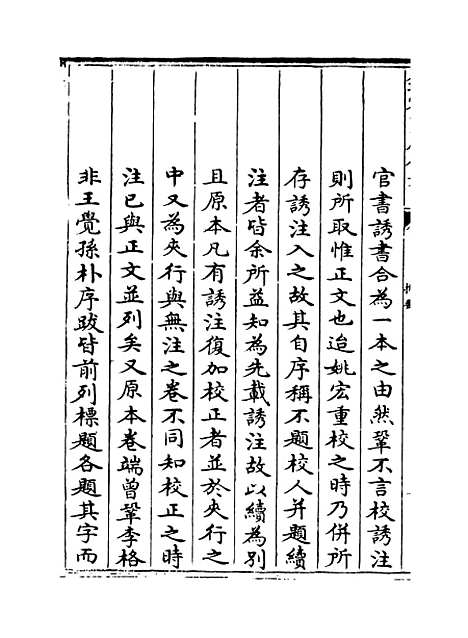 官書誘書合為一本之由然鞏不言校誘注
則所取惟正文也迨姚宏重校之時乃併所
存誘注入之故其自序稱不題校人并題續
注者皆余所益知為先載誘注故以續為別
且原本凡有誘注復加校正者並於夾行之
中又為夾行與無注之卷不同知校正之時
注已與正文並列矣又原本卷端曾鞏李格
非王覺孫朴序跋皆前列標題各題其字而